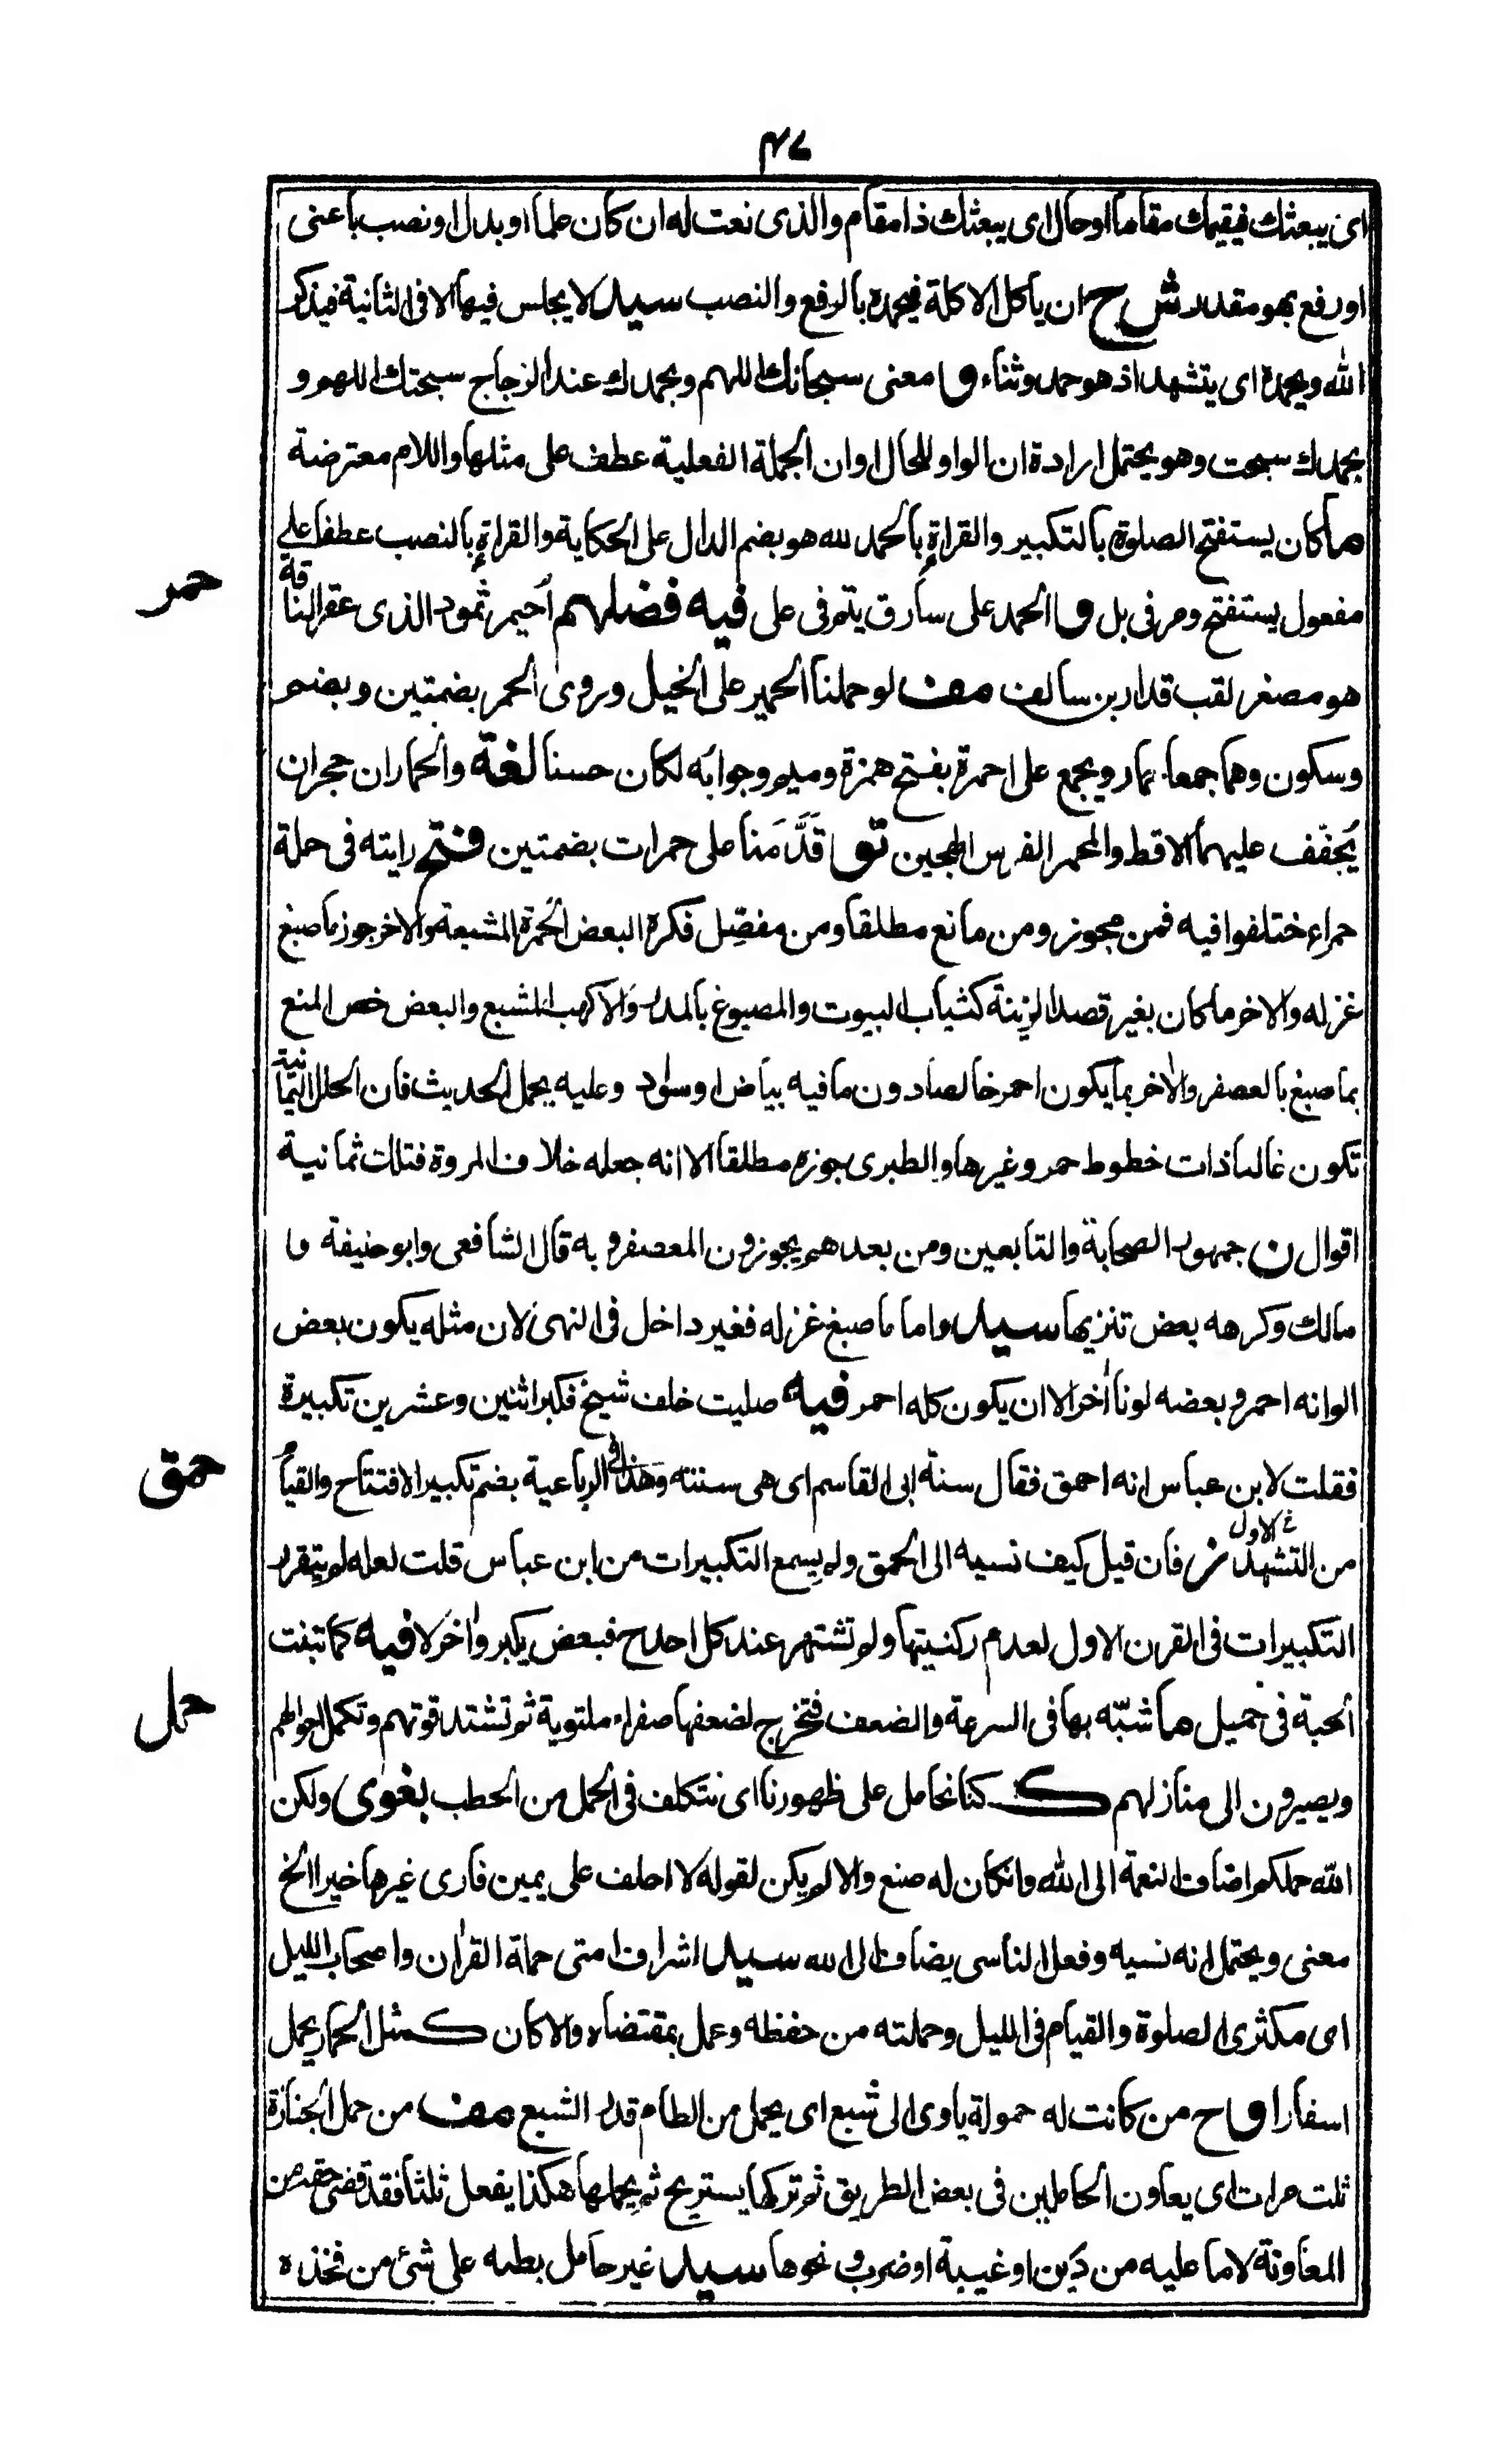 ٤٧
اى يبعثك فيقيمك مقاما او حال اى يبعثك ذا مقام والذى نعت له ان كان علما او بدل او نصب باعنى
او رفع بهو مقدر ش ح ان ياكل الاكلة فيحمده بالرفع والنصب سيد لا يجلس فيها الا فى الثانية فيذكر
الله ويحمده اى يتشهد اذ هو حمد وثناء و معنى سبحانك اللهم وبحمدك عند الزجاج سبحتك اللهم و
بحمدك سبحت وهو يحتمل ارادة ان الواو للحال او ان الجملة الفعلية عطف على مثلها واللام معترضة
ما كان يستفتح الصلوة بالتكبير والقراءة بالحمد لله هو بضم الدال على الحكاية والقراءة بالنصب عطفا على
مفعول يستفتح ومر فى بل و الحمد على سارق يتم فى على فيه فضلهم أحيمر ثمود الذى عقر الناقة
حمر
هو مصغر لقب قدار بن سالف مف لو حملنا الحمير على الخيل وروى الحمر بضمتين وبضم
وسكون وهما جمعا حمار ويجمع على احمرة بفتح همزة وميم وجوابه لكان حسنا لغة والحماران حجران
يُجفّف عليهما الاقط والمحمر الفرس الهجين تو قَدَّمَنا على حمرات بضمتين فتح رايته فى حلة
حمراء ختلفوا فيه فمن مجوز ومن مانع مطلقا ومن مفصّل فكره البعض الحُمرة المشبعة والاخر جوز ما صبغ
غزله والاخر ما كان بغير قصد الزينة كثياب البيوت والمصبوغ بالمدر والاكهب المشبع والبعض خص المنع
بما صبغ بالعصفر والاخر بما يكون احمر خالصا دون ما فيه بياض او سواد وعليه يحمل الحديث فان الحلل اليمانية
تكون غالبا ذات خطوط حمر وغيرها والطبرى جوزه مطلقا الا انه جعله خلاف المروة فتلك ثمانية
اقوال ن جمهور الصحابة والتابعين ومن بعدهم يجوزون المعصفر وبه قال الشافعى وابو حنيفة و
مالك وكرهه بعض تنزيها سيد واما ما صبغ غزله فغير داخل فى النهى لان مثله يكون بعض
الوانه احمر وبعضه لونا أخر الا ان يكون كله احمر فيه صليت خلف شيخ فكبر اثنين وعشرين تكبيرة
فقلت لابن عباس انه احمق فقال سنة ابى القاسم اى هى سنته وهذا فى الرباعية بضم تكبير الافتتاح والقيام
حمق
من التشهد الاول ز فان قيل كيف نسبه الى الحمق ولم يسمع التكبيرات من ابن عباس قلت لعله لم يتقرر
التكبيرات فى القرن الاول لعدم ركنيتها ولم تشتهر عند كل احد ح فبعض يكبر واخر لا فيه كما تبنت
ألحبة فى حميل ما شبّه بها فى السرعة والضعف فتخرج لضعفها صفراء ملتوية ثم تشتد قوتهم وتكمل احوالهم
حمل
ويصيرون الى منازلهم ك كنا نحامل على ظهورنا اى نتكلف فى الحمل من الحطب بغوى ولكن
الله حملكم اضاف النعمة الى الله وان كان له صنع والا لم يكن لقوله لا احلف على يمين فارى غيرها خيرا الخ
معنى ويحتمل انه نسيه وفعل الناسى يضاف الى الله سيد اشراف امتى حملة القران واصحاب الليل
اى مكثرى الصلوة والقيام فى الليل وحملته من حفظه وعمل بمقتضاه والا كان كمثل الحمار يحمل
اسفارا و ح من كانت له حمولة ياوى الى شبع اى يحمل من الطام قدر الشبع مف من حمل الجنازة
ثلت مرات اى يعاون الحاملين فى بعض الطريق ثم تركها يستريح ثم يحملها هكذا يفعل ثلثا فقد قضى حقه من
المعاونة لا ما عليه من دَين او غيبة او ضرب و نحوها سيد غير حامل بطنه على شئ من فخذه